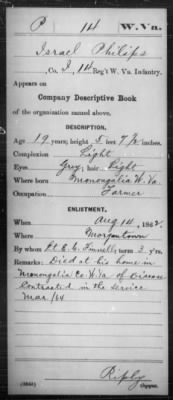 P 14 W. Va.
Israel Philips
, Co. I, 14 Reg't W. Va. Infantry.
Appears on
Company Descriptive Book
of the organization named above.
DESCRIPTION.
Age 19 years; height 5 feet 7½ inches.
Complexion Light
Eyes Grey; hair Light
Where born Monongalia W. Va.
Occupation Farmer
ENLISTMENT.
When Aug 14, 1862.
Where Morgantown
By whom Lt. E. C. Finnell; term 3 y'rs.
Remarks: Died at his home in
Monongalia Co. W. Va. of Disease
Contracted in the service
Mar /64
Ripley
(383g) Copyist.